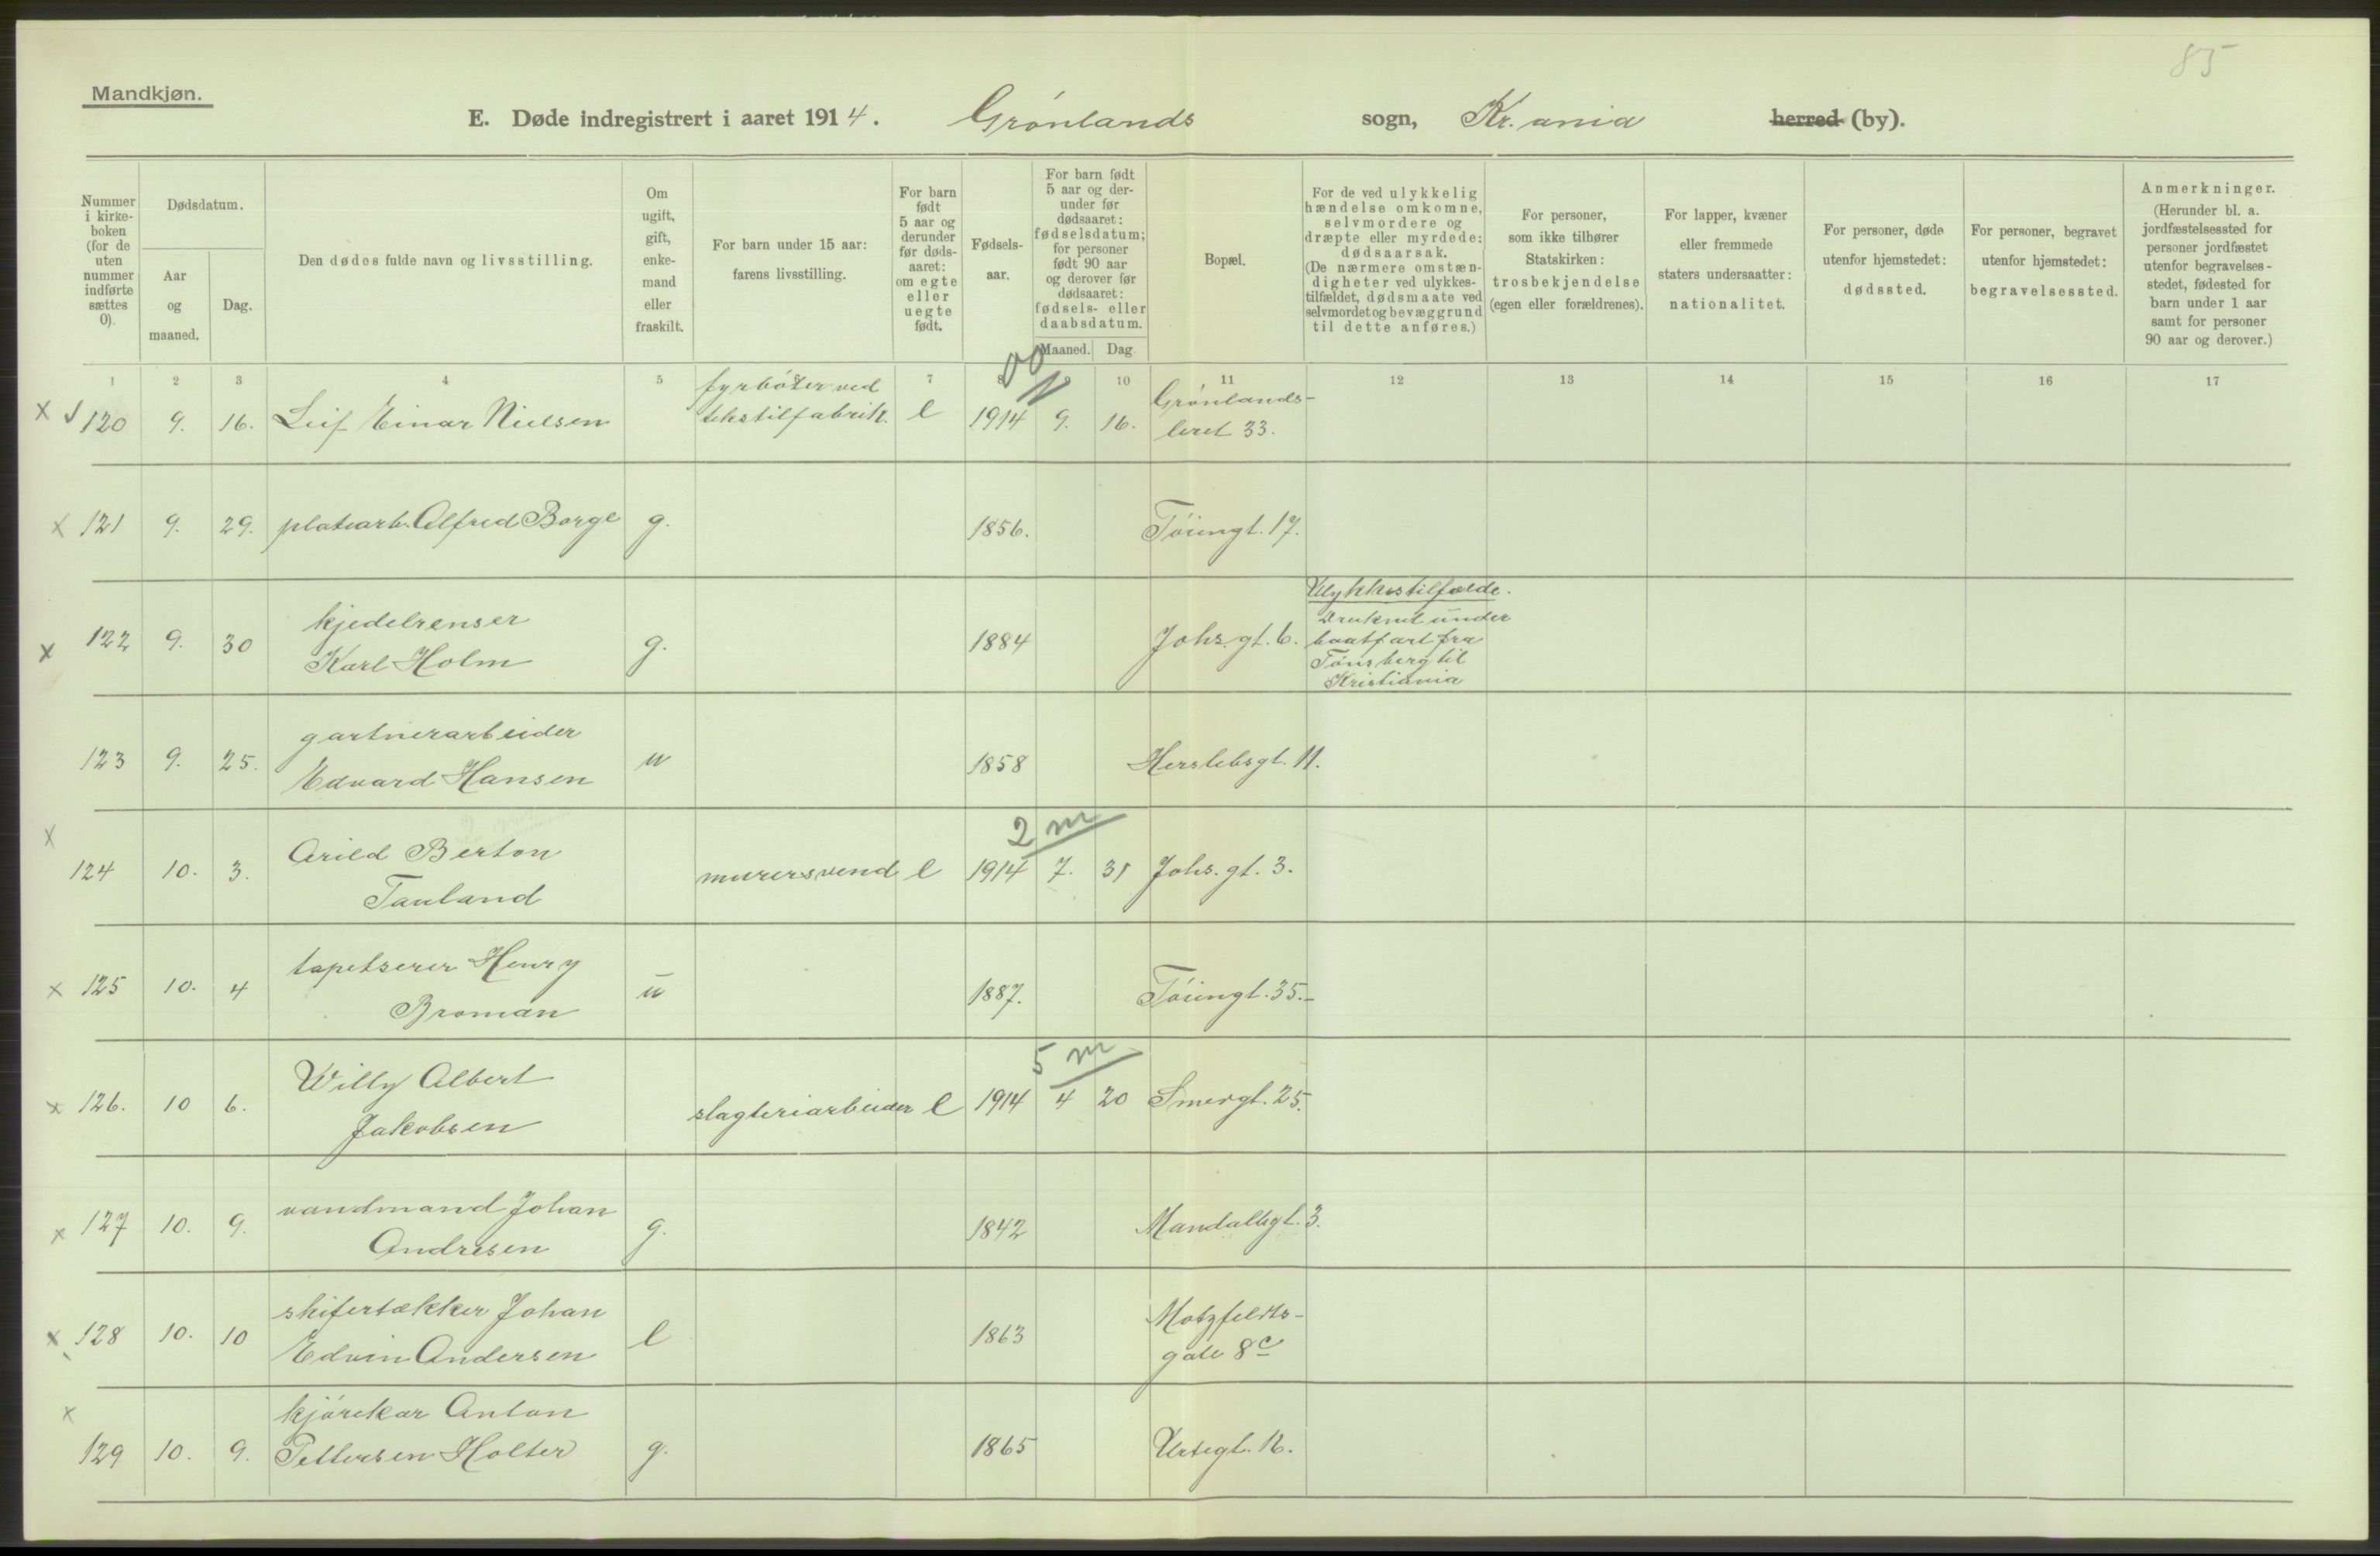 85
Mandkjøn.
E. Døde indregistrert i aaret 1914. Grønlands sogn, Kr.ania herred (by).
Nummer i kirkeboken (for de uten nummer indførte sættes 0).
Dødsdatum.
Aar og maaned.
Dag.
Den dødes fulde navn og livsstilling.
Om ugift, gift, enkemand eller fraskilt.
For barn under 15 aar: farens livsstilling.
For barn født 5 aar og derunder før dødsaaret: om egte eller uegte født.
Fødselsaar.
For barn født 5 aar og derunder før dødsaaret: fødselsdatum; for personer født 90 aar og derover før dødsaaret: fødsels- eller daabsdatum.
Maaned. Dag
Bopæl.
For de ved ulykkelig hændelse omkomne, selvmordere og dræpte eller myrdede: dødsaarsak. (De nærmere omstændigheter ved ulykkestilfældet, dødsmaate ved selvmordet og bevæggrund til dette anføres.)
For personer, som ikke tilhører Statskirken: trosbekjendelse (egen eller forældrenes).
For lapper, kvæner eller fremmede staters undersaatter: nationalitet.
For personer, døde utenfor hjemstedet: dødssted.
For personer, begravet utenfor hjemstedet: begravelsessted.
Anmerkninger. (Herunder bl. a. jordfæstelsessted for personer jordfæstet utenfor begravelsesstedet, fødested for barn under 1 aar samt for personer 90 aar og derover.)
1 2 3 4 5 7 8 9 10 11 12 13 14 15 16 17
x 120 9. 16. Leif Einar Nielsen fyrbøter ved tekstilfabrik. e 1914 9. 16. Grønlandsleret 33.
x 121 9. 29. platearb. Alfred Borge g. 1856. Tøiengt. 17.
x 122 9. 30 kjedelrenser Karl Holm g. 1884 Johs. gt. 6. Ulykkestilfælde. Druknet under baatfart fra Tønsberg til Kristiania
123 9. 25. gartnerarbeider Edvard Hansen u 1858 Herslebsgt. 11.
2 m
x 124 10. 3. Arild Berton Tauland murersvend e 1914 7. 31 Johs. gt. 3.
x 125 10. 4 tapetserer Henry Broman u 1887. Tøiengt. 35.-
5 m
x 126. 10 6. Willy Albert Jakobsen slagteriarbeider e 1914 4 20 Smergt. 25.
x 127 10. 9. vandmand Johan Andresen g. 1842 Mandallsgt. 3.
x 128 10. 10 skifertækker Johan Edvin Andersen e 1863 Motzfeldtsgate 8c
x 129 10. 9. kjørekar Anton Pettersen Holter g. 1865 Urtegt. 16.